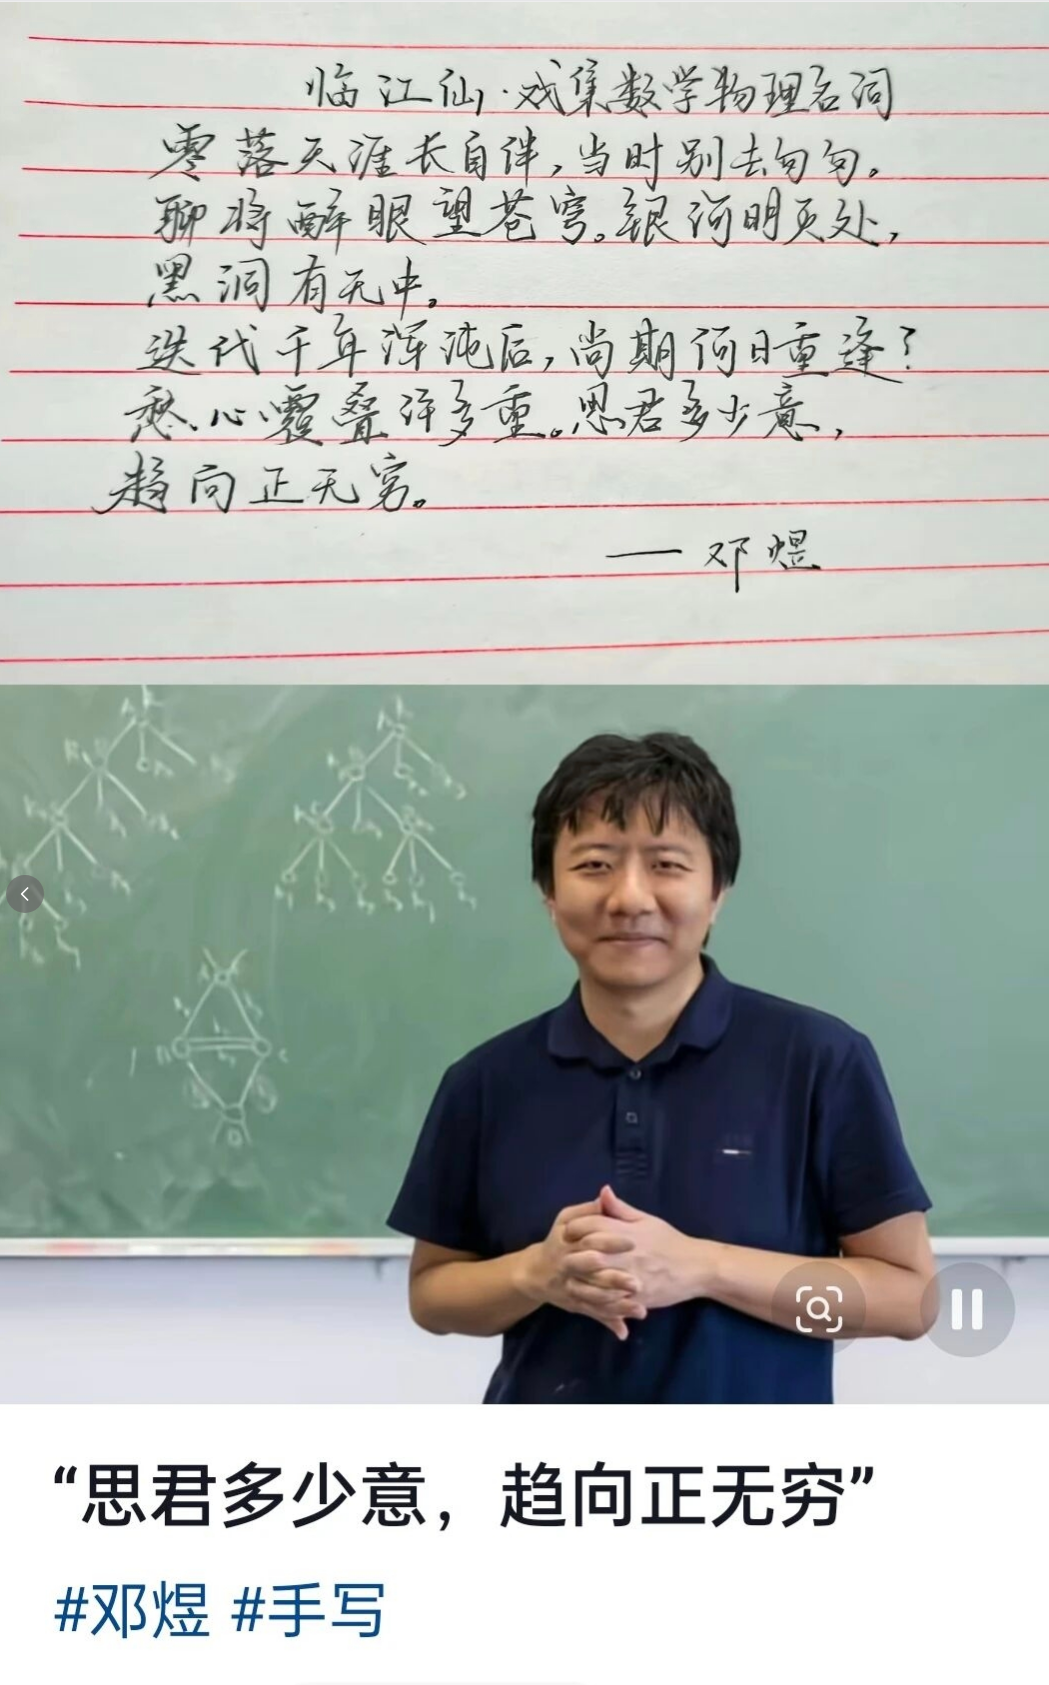 临江仙·戏集数学物理名词
零落天涯长自伴，当时别去匆匆。
聊将醉眼望苍穹。银河明灭处，
黑洞有无中。
迭代千年浑沌后，尚期何日重逢？
愁心覆叠许多重。思君多少意，
趋向正无穷。
——邓煜
“思君多少意，趋向正无穷”
#邓煜 #手写